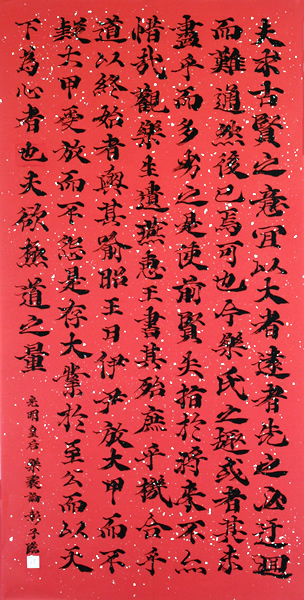 夫求古賢之意宜以大者遠者先之必迂迴
而難通然後已焉可也今樂氏之趣或者其未
盡乎而多劣之是使前賢失指於將來不亦
惜哉觀樂生遺燕惠王書其殆庶乎機合乎
道以終始者與其喻昭王曰伊尹放大甲而不
疑大甲受放而不怨是存大業於至公而以天
下為心者也夫欲極道之量
光明皇后 樂毅論